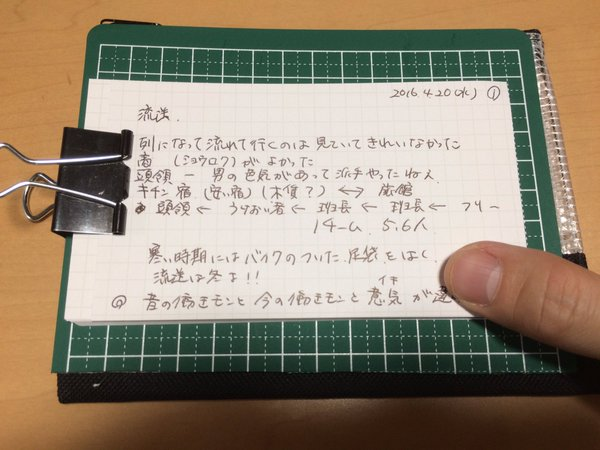 2016.4.20(水) ①
流送.
列になって流れて行くのは見ていてきれいなかった
(ショウロク)がよかった
頭領 ー 男の色気があって派手やったねえ
キチン宿(安い宿)(木賃?) ↔ 旅館
頭領 ← うけおい者 ← 班長 ← 班長 ←
1チーム 5.6人
寒い時期にはバイクのついた足袋をはく.
流送は冬よ!!
イキ
昔の働きモンと今の働きモンと意気が違